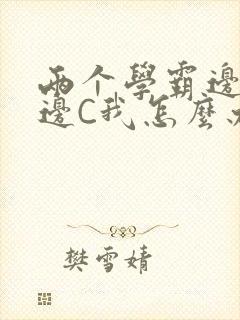 两个學霸邊
邊C我怎麼
樊雪婧